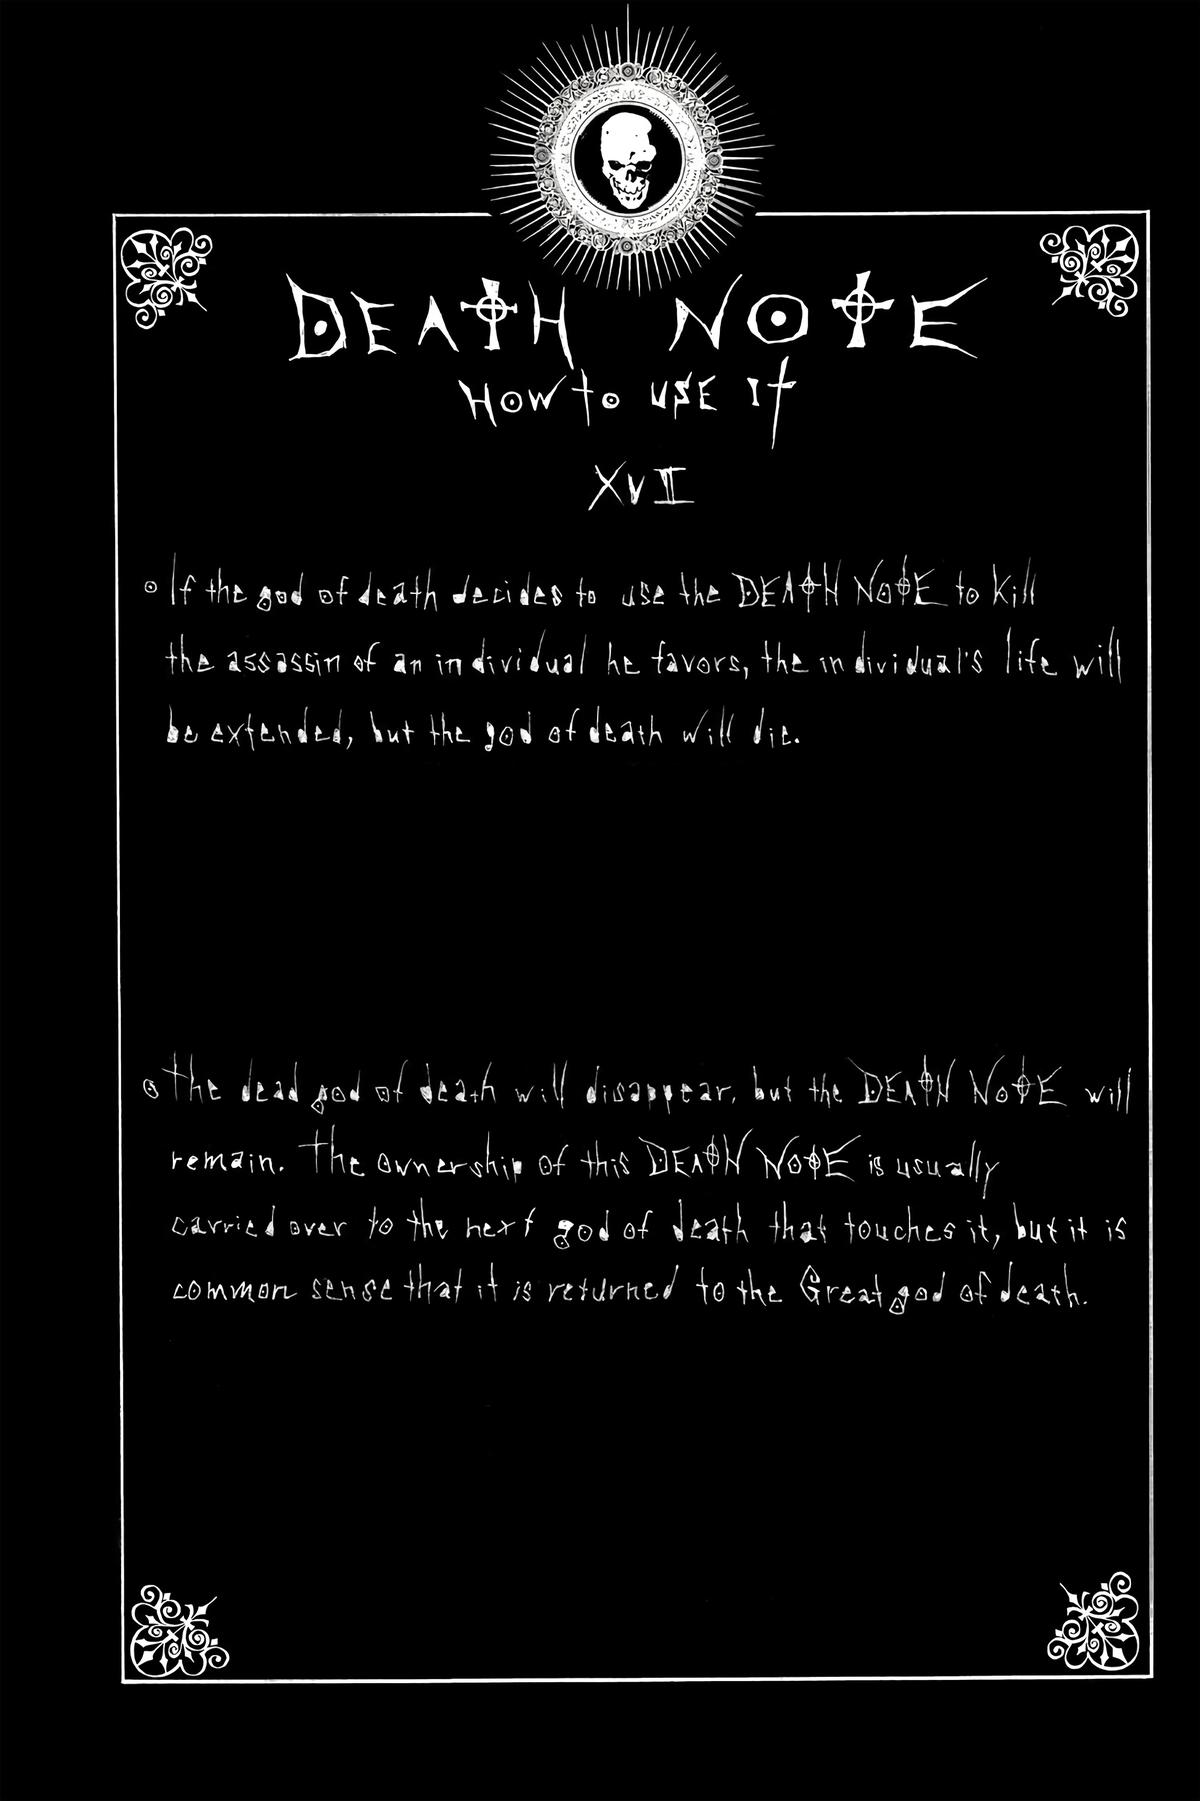 DEATH NOTE
HOW to USE It
XVII
If the god of death decides to use the DEATH NOTE to kill
the assassin of an individual he favors, the individual's life will
be extended, but the god of death will die.
The dead god of death will disappear, but the DEATH NOTE will
remain. The ownership of this DEATH NOTE is usually
carried over to the next god of death that touches it, but it is
common sense that it is returned to the Great god of death.